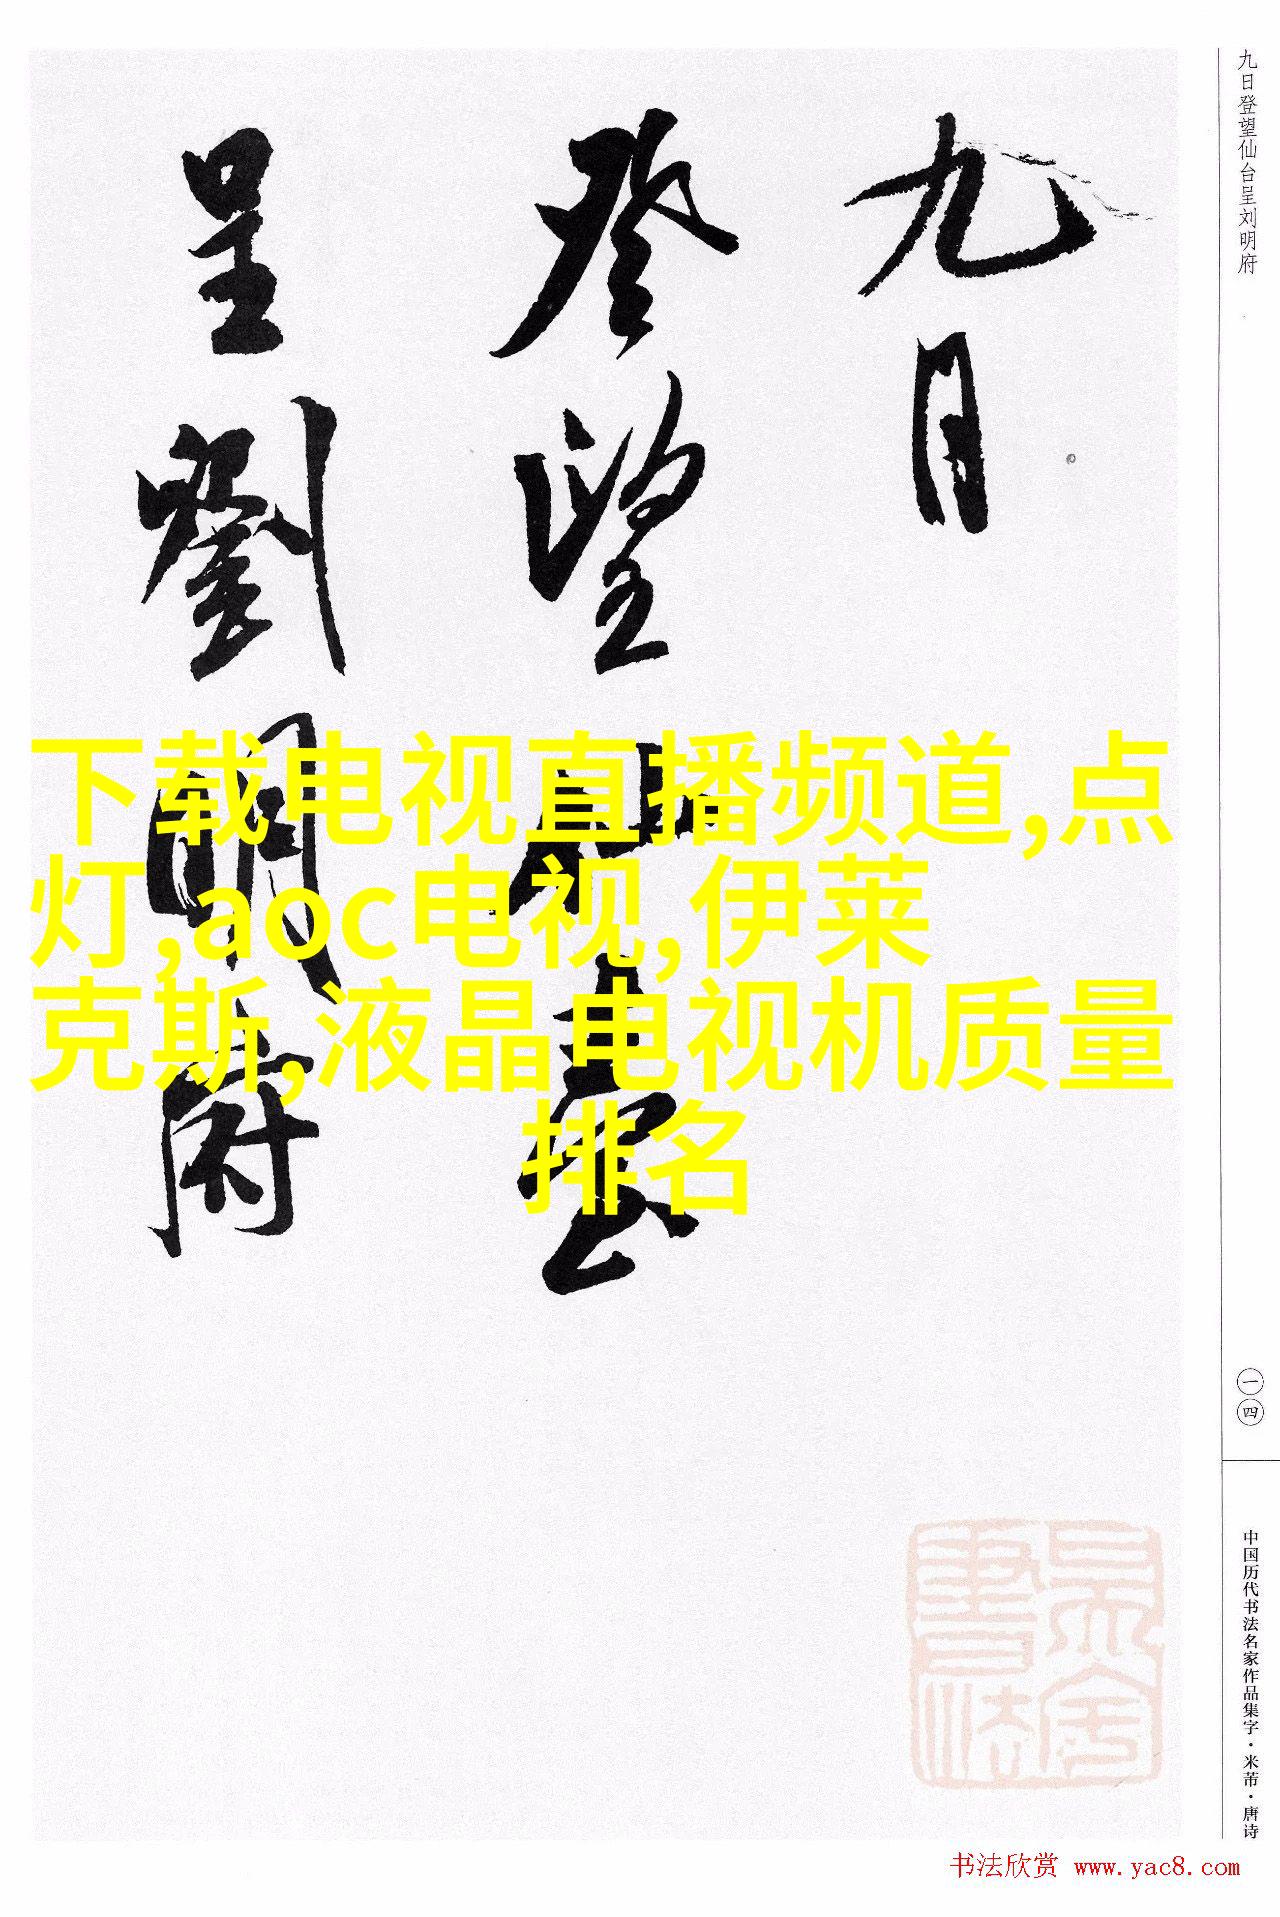 九日
登望仙臺
呈劉明府
九日登望仙台呈刘明府
一四
中国历代书法名家作品集字·米芾·唐诗
下载电视直播频道,点
灯,aoc电视,伊莱
克斯,液晶电视机质量
排名
书法欣赏 www.yac8.com